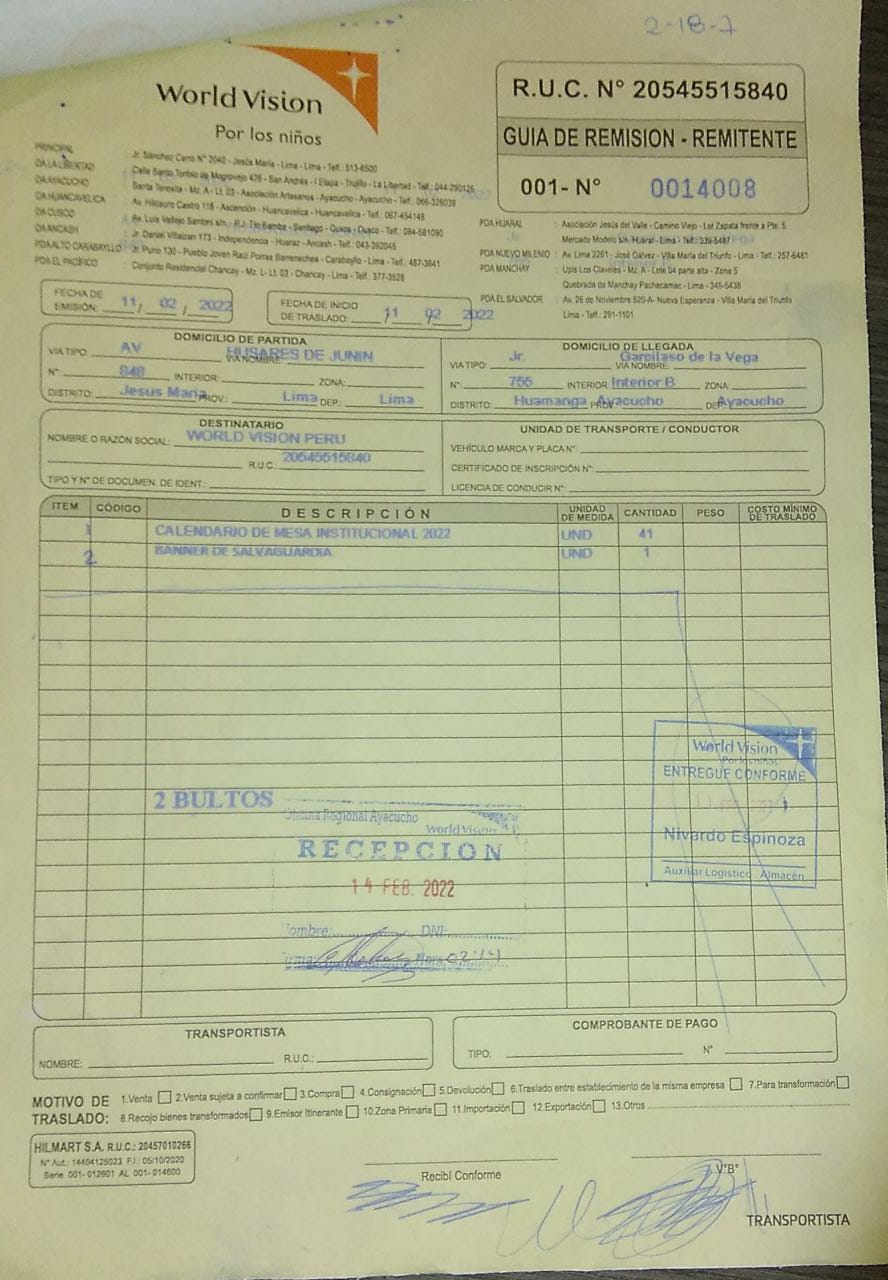 2-18-7
World Vision
Por los niños
R.U.C. N° 20545515840
GUIA DE REMISION - REMITENTE
001- N° 0014008
PRINCIPAL Jr. Sánchez Cerro N° 2040 - Jesús María - Lima - Lima - Telf.: 513-6500
OA LA LIBERTAD Calle Santo Toribio de Mogrovejo 426 - San Andrés - I Etapa - Trujillo - La Libertad - Telf.: 044-290125
OA AYACUCHO Santa Teresita - Mz. A - Lt. 03 - Asociación Artesanos - Ayacucho - Ayacucho - Telf.: 066-326039
OA HUANCAVELICA Av. Hildauro Castro 118 - Ascención - Huancavelica - Huancavelica - Telf. 067-454148
OA CUSCO Av. Luis Vallejo Santoni s/n. - P.J. Tío Bamba - Santiago - Cusco - Cusco - Telf.: 084-581090
OA ANCASH Jr. Daniel Villaizan 173 - Independencia - Huaraz - Ancash - Telf.: 043-392045
PDA ALTO CARABAYLLO Jr. Puno 130 - Pueblo Joven Raúl Porras Barrenechea - Carabayllo - Lima - Telf.: 487-3641
PDA EL PACÍFICO Conjunto Residencial Chancay - Mz. L - Lt. 03 - Chancay - Lima - Telf.: 377-3528
PDA HUARAL : Asociación Jesús del Valle - Camino Viejo - Lot Zapata frente a Pte. 5
Mercado Modelo s/n. Huaral - Lima - Telf.: 339-5487
PDA NUEVO MILENIO : Av. Lima 2261 - José Gálvez - Villa María del Triunfo - Lima - Telf.: 257-6481
PDA MANCHAY : Upis Los Claveles - Mz. A - Lote 04 parte alta - Zona 5
Quebrada de Manchay Pachacamac - Lima - 345-5438
PDA EL SALVADOR : Av. 26 de Noviembre 520-A- Nueva Esperanza - Villa María del Triunfo
Lima - Telf.: 291-1101
FECHA DE EMISIÓN: 11/ 02 / 2022
FECHA DE INICIO DE TRASLADO: 11 02 2022
DOMICILIO DE PARTIDA
VIA TIPO: AV VIA NOMBRE: HUSARES DE JUNIN
N°: 848 INTERIOR: ZONA:
DISTRITO: Jesus Maria PROV.: Lima DEP.: Lima
DOMICILIO DE LLEGADA
VIA TIPO: Jr. VIA NOMBRE: Garcilaso de la Vega
N°: 755 INTERIOR Interior B ZONA:
DISTRITO: Huamanga PROV.: Ayacucho DEP.: Ayacucho
DESTINATARIO
NOMBRE O RAZÓN SOCIAL: WORLD VISION PERU
R.U.C.: 20545515840
TIPO Y N° DE DOCUMEN. DE IDENT.:
UNIDAD DE TRANSPORTE / CONDUCTOR
VEHÍCULO MARCA Y PLACA N°:
CERTIFICADO DE INSCRIPCIÓN N°:
LICENCIA DE CONDUCIR N°:
ITEM CÓDIGO DESCRIPCIÓN UNIDAD DE MEDIDA CANTIDAD PESO COSTO MÍNIMO DE TRASLADO
1 CALENDARIO DE MESA INSTITUCIONAL 2022 UND 41
2 BANNER DE SALVAGUARDIA UND 1
World Vision
Por los niños
ENTREGUE CONFORME
11 FEB 2022
Nivardo Espinoza
Auxiliar Logístico Almacén
2 BULTOS
Oficina Regional Ayacucho
World Vision
RECEPCION
14 FEB. 2022
Nombre: DNI:
Firma: Hora:
TRANSPORTISTA
NOMBRE: R.U.C.:
COMPROBANTE DE PAGO
TIPO: N°
MOTIVO DE TRASLADO:
1.Venta 2.Venta sujeta a confirmar 3.Compra 4.Consignación 5.Devolución 6.Traslado entre establecimiento de la misma empresa 7.Para transformación
8.Recojo bienes transformados 9.Emisor Itinerante 10.Zona Primaria 11.Importación 12.Exportación 13.Otros
HILMART S.A. R.U.C.: 20457010266
N° Aut.: 14404125023 F.I.: 05/10/2020
Serie 001- 012601 AL 001- 014600
Recibí Conforme
V°B°
TRANSPORTISTA